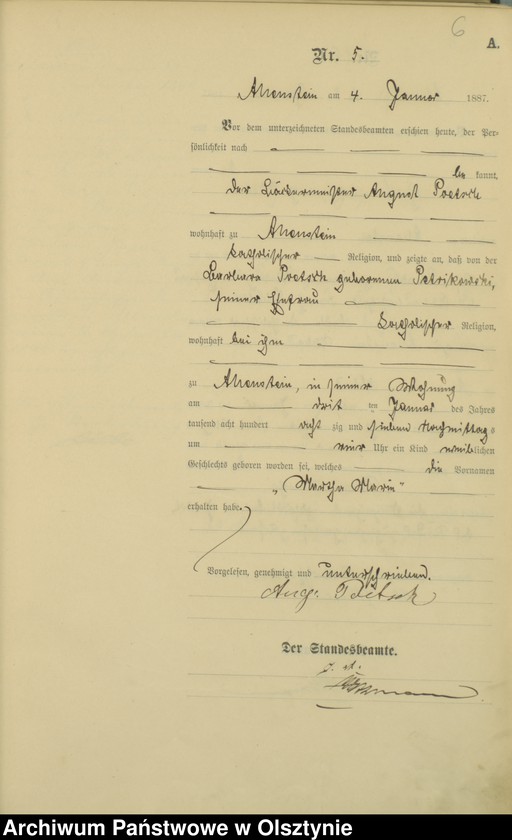 6
A.
Nr. 5.
Allenstein am 4. Januar 1887.
Vor dem unterzeichneten Standesbeamten erschien heute, der Per-
sönlichkeit nach
be kannt,
der Bäckermeister August Poetsch
wohnhaft zu Allenstein
katholischer Religion, und zeigte an, daß von der
Barbara Poetsch geborenen Petrikowski,
seiner Ehefrau
katholischer Religion,
wohnhaft bei ihm
zu Allenstein, in seiner Wohnung
am dritten Januar des Jahres
tausend acht hundert achtzig und sieben Nachmittags
um einer Uhr ein Kind weiblichen
Geschlechts geboren worden sei, welches die Vornamen
„Martha Maria“
erhalten habe.
Vorgelesen, genehmigt und unterschrieben.
Aug. Poetsch
Der Standesbeamte.